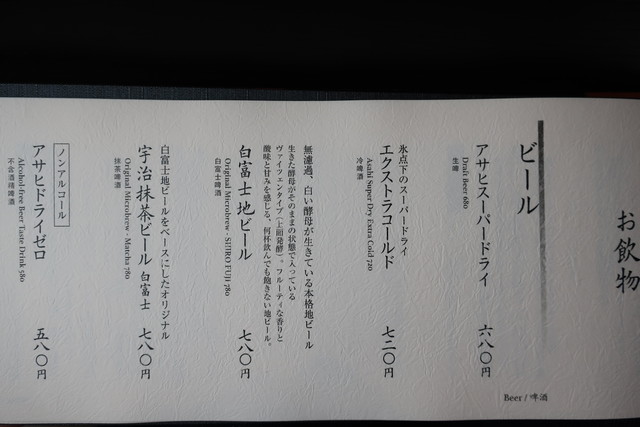 お飲物
ビール
Beer / 啤酒
アサヒスーパードライ 六八〇円
Draft Beer 680
生啤
氷点下のスーパードライ
エクストラコールド 七二〇円
Asahi Super Dry Extra Cold 720
冷啤酒
無濾過、白い酵母が生きている本格地ビール
生きた酵母がそのままの状態で入っている
ヴァイツェンタイプ（上面発酵）。フルーティな香りと
酸味と甘みを感じる、何杯飲んでも飽きない地ビール。
白富士地ビール 七八〇円
Original Microbrew - SHIRO FUJI 780
白富士啤酒
白富士地ビールをベースにしたオリジナル
宇治抹茶ビール 白富士 七八〇円
Original Microbrew - Matcha 780
抹茶啤酒
ノンアルコール
アサヒドライゼロ 五八〇円
Alcohol-free Beer Taste Drink 580
不含酒精啤酒